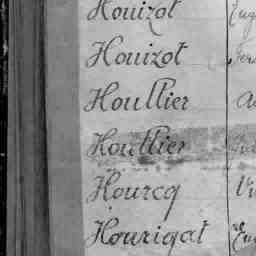 Houizot
Houizot
Houllier
Houllier
Hourcq
Hourigat